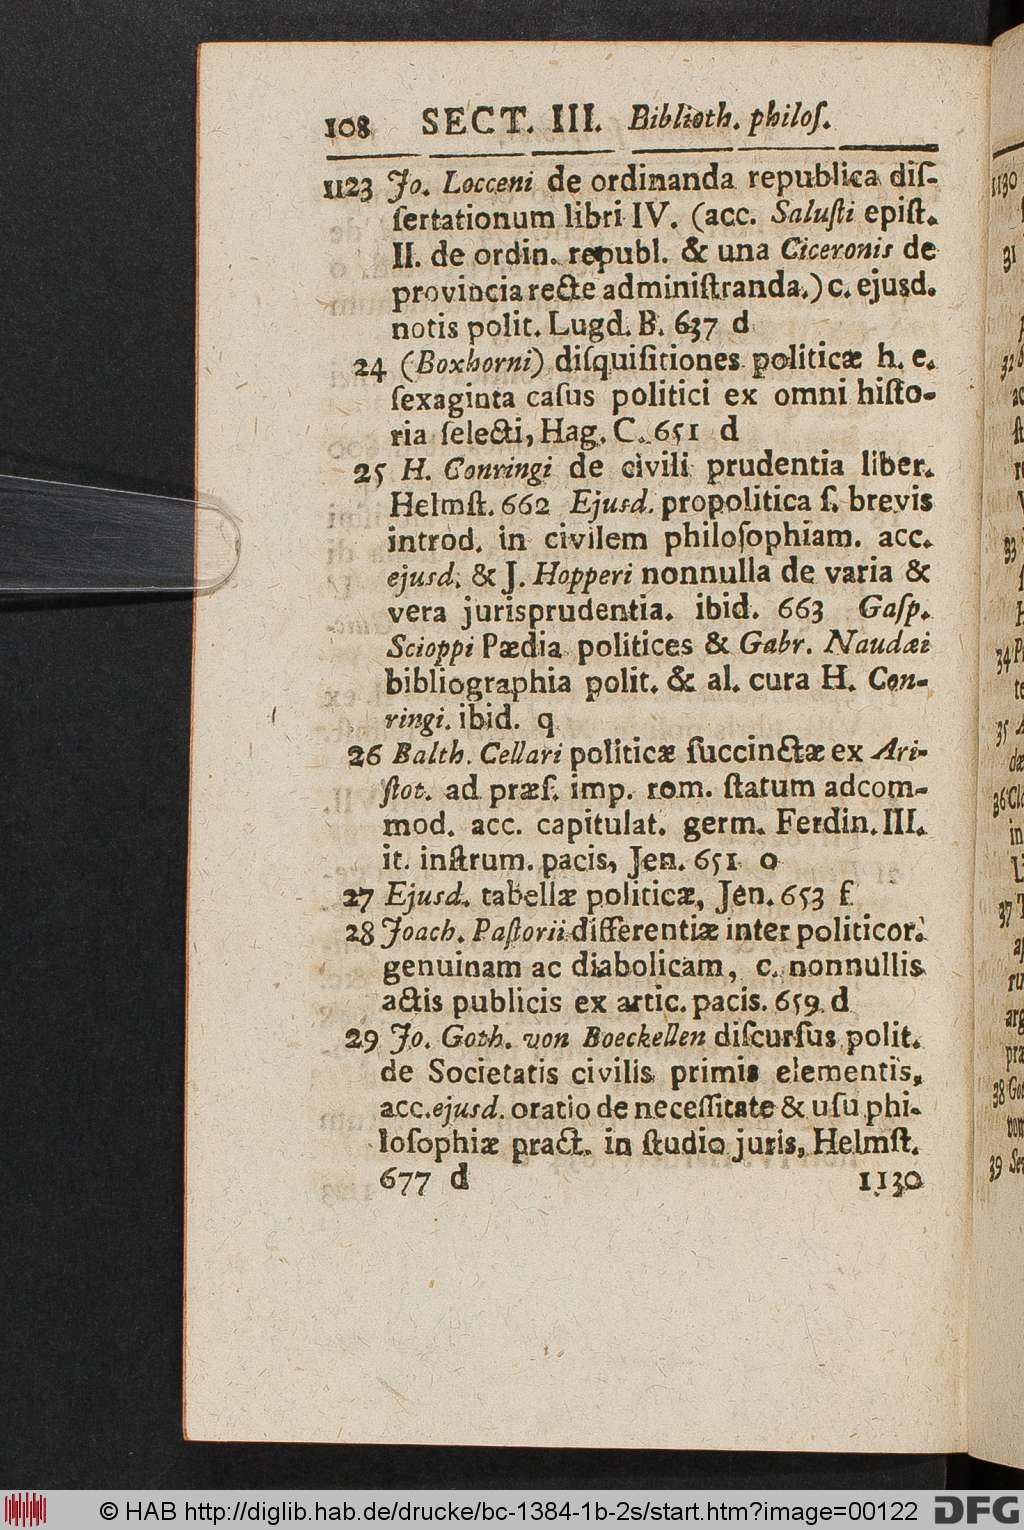 108 SECT. III. Biblioth. philoſ.
1123 Jo. Locceni de ordinanda republica diſ-
ſertationum libri IV. (acc. Saluſti epiſt.
II. de ordin. republ. & una Ciceronis de
provincia recte adminiſtranda.) c. ejusd.
notis polit. Lugd. B. 637 d
24 (Boxhorni) diſquiſitiones politicæ h. e.
ſexaginta caſus politici ex omni hiſto-
ria ſelecti, Hag. C. 651 d
25 H. Conringi de civili prudentia liber.
Helmſt. 662 Ejusd. propolitica ſ. brevis
introd. in civilem philoſophiam. acc.
ejusd. & J. Hopperi nonnulla de varia &
vera jurisprudentia. ibid. 663 Gaſp.
Scioppi Pædia politices & Gabr. Naudæi
bibliographia polit. & al. cura H. Con-
ringi. ibid. q
26 Balth. Cellari politicæ ſuccinctæ ex Ari-
ſtot. ad præſ. imp. rom. ſtatum adcom-
mod. acc. capitulat. germ. Ferdin. III.
it. inſtrum. pacis, Jen. 651 o
27 Ejusd. tabellæ politicæ, Jen. 653 f
28 Joach. Paſtorii differentiæ inter politicor.
genuinam ac diabolicam, c. nonnullis
actis publicis ex artic. pacis. 659 d
29 Jo. Goth. von Boeckellen diſcurſus polit.
de Societatis civilis primis elementis,
acc. ejusd. oratio de neceſſitate & uſu phi-
loſophiæ pract. in ſtudio juris, Helmſt.
677 d 1130
1130
31
32
33
34
35
36
37
38
39
© HAB http://diglib.hab.de/drucke/bc-1384-1b-2s/start.htm?image=00122 DFG